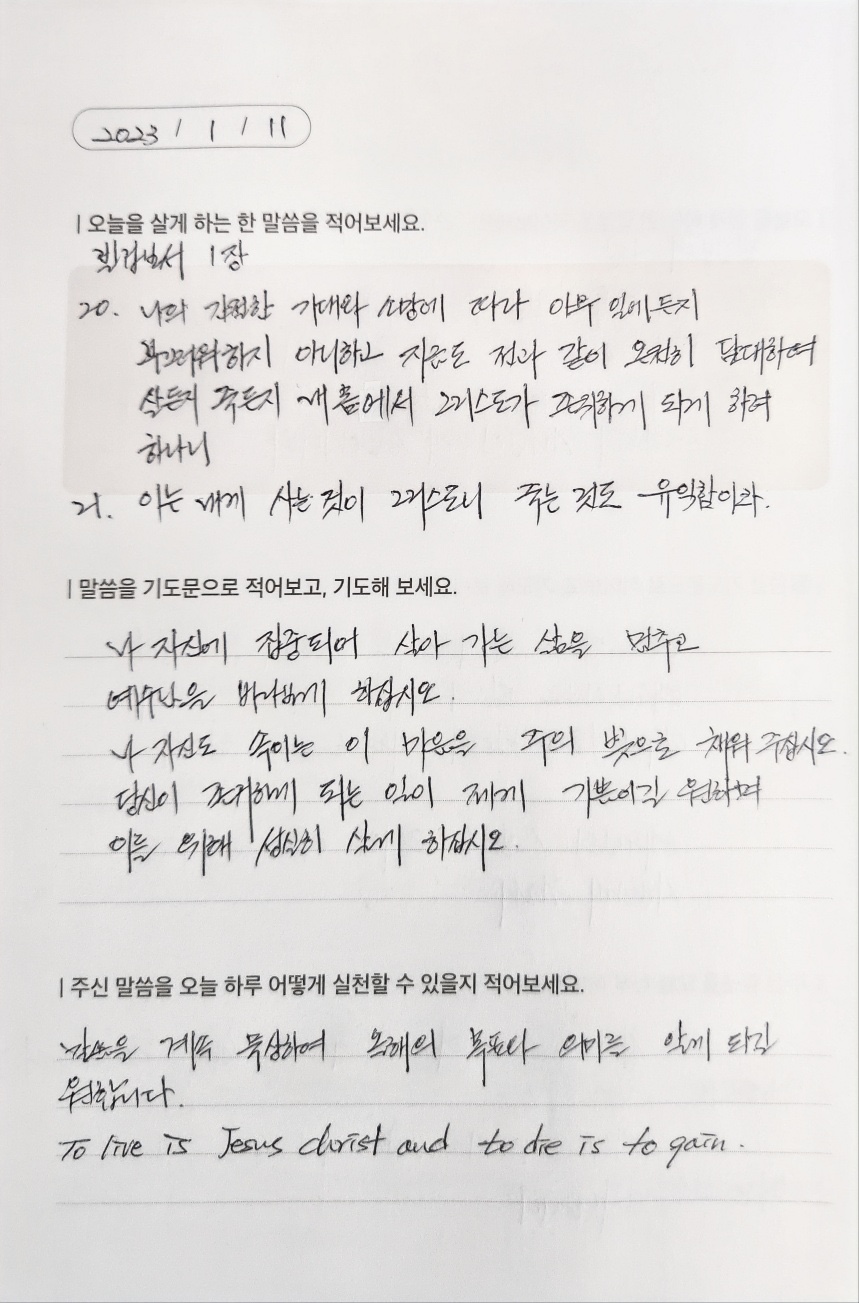 2023 / 1 / 11
| 오늘을 살게 하는 한 말씀을 적어보세요.
빌립보서 1장
20. 나의 간절한 기대와 소망에 따라 아무 일에든지
부끄러워하지 아니하고 지금도 전과 같이 온전히 담대하여
살든지 죽든지 내 몸에서 그리스도가 존귀하게 되게 하려
하나니
21. 이는 내게 사는 것이 그리스도니 죽는 것도 유익함이라.
| 말씀을 기도문으로 적어보고, 기도해 보세요.
나 자신에 집중되어 살아 가는 삶을 멈추고
예수님을 바라보게 하십시오.
나 자신도 속이는 이 마음을 주의 빛으로 채워 주십시오.
당신이 존귀하게 되는 일이 제게 기쁨이길 원하며
이를 위해 성실히 살게 하십시오.
| 주신 말씀을 오늘 하루 어떻게 실천할 수 있을지 적어보세요.
말씀을 계속 묵상하여 올해의 목표와 의미를 알게 되길
원합니다.
To live is Jesus christ and to die is to gain.